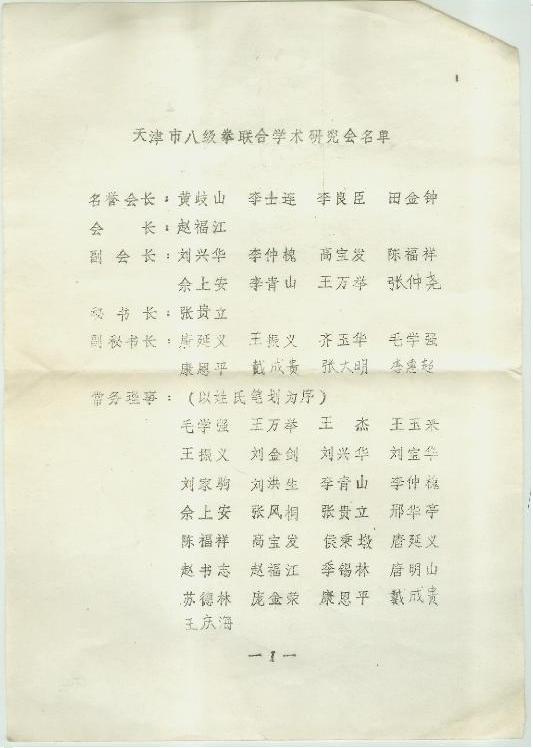 天津市八级拳联合学术研究会名单
名誉会长：黄歧山 李士连 李良臣 田金钟
会 长：赵福江
副会长：刘兴华 李仲槐 高宝发 陈福祥
佘上安 李青山 王万举 张仲尧
秘书长：张贵立
副秘书长：唐延义 王振义 齐玉华 毛学强
康恩平 戴成贵 张大明 李惠超
常务理事：（以姓氏笔划为序）
毛学强 王万举 王 杰 王玉米
王振义 刘金剑 刘兴华 刘宝华
刘家驹 刘洪生 李青山 李仲槐
佘上安 张风桐 张贵立 邢华亭
陈福祥 高宝发 侯秉墩 唐延义
赵书志 赵福江 季锡林 唐明山
苏德林 庞金荣 康恩平 戴成贵
王庆海
—1—